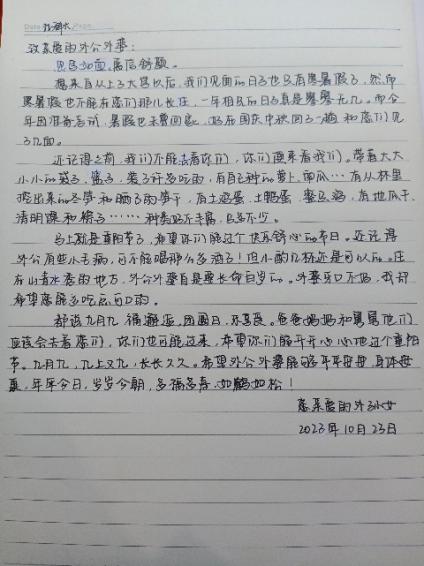 Date
致亲爱的外公外婆：
见字如面，展信舒颜。
想来自从上了大学以后，我们见面的日子也只有寒暑假了，然而
寒暑假也不能在您们那儿长住，一年相见的日子真是寥寥无几。而今
年因准备考试，暑假也未曾回家，好在国庆中秋回了一趟和您们见
了几面。
还记得之前，我们不能去看你们，你们便来看我们。带着大大
小小的袋子，篮子，装了许多吃的，有自己种的萝卜、南瓜……有从林里
挖出来的冬笋和晒了的笋干，有土鸡蛋、土鸭蛋、整只鸡，有地瓜干、
清明粿和粽子……种类好不丰富，且多不少。
马上就是重阳节了，希望你们能过个快乐舒心的节日。还记得
外公有些小毛病，可不能喝那么多酒了！但小酌几杯还是可以的。住
在山清水秀的地方，外公外婆自是要长命百岁的。外婆牙口不好，我却
希望您能多吃点可口的。
都说九月九，福邂逅，团圆日，乐享受。爸爸妈妈和舅舅他们
应该会去看您们，你们也可能过来，希望你们能开开心心地过个重阳
节。九月九，九上又九，长长久久。希望外公外婆能够平平安安，身体安
康，年年今日，岁岁今朝，多福多寿，如鹤如松！
您亲爱的外孙女
2023年10月23日